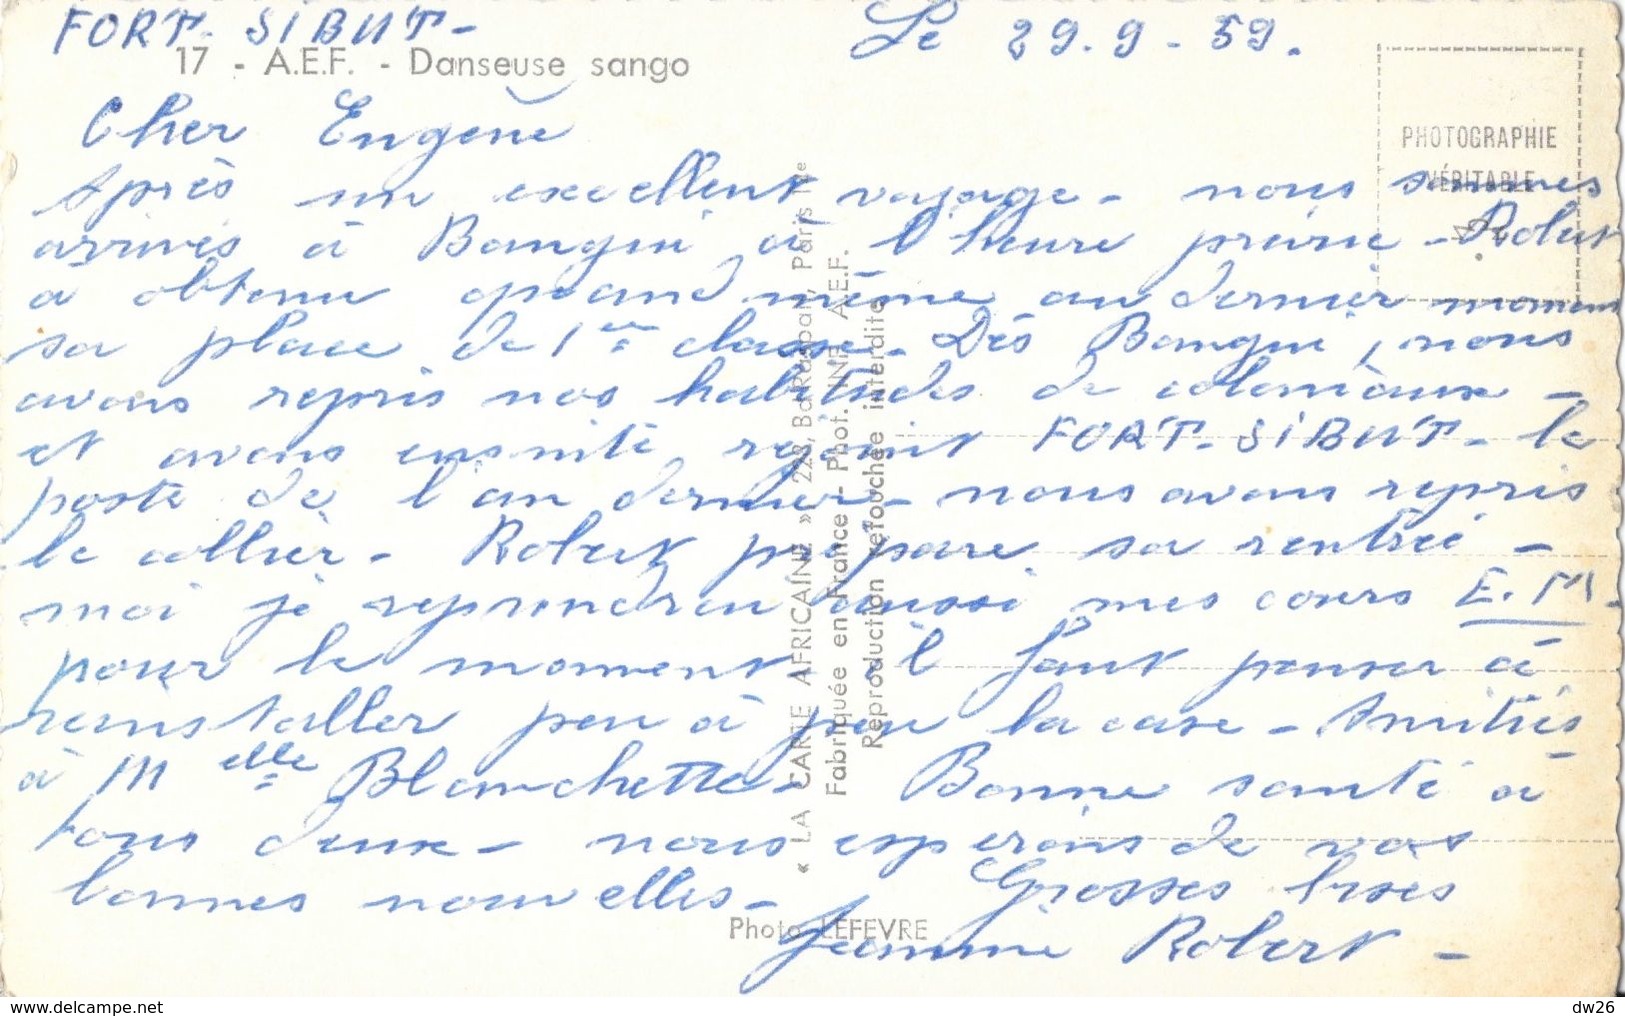 FORT-SIBUT- Le 29.9-59.
17 - A.E.F. - Danseuse sango
PHOTOGRAPHIE
VÉRITABLE
Cher Eugène
Après un excellent voyage - nous sommes
arrivés à Bangui à l'heure prévue - Robert
a obtenu quand même au dernier moment
sa place de 1ère classe - Dès Bangui, nous
avons repris nos habitudes de coloniaux -
et avons ensuite rejoint FORT-SIBUT - le
poste de l'an dernier - nous avons repris
le collier - Robert prépare sa rentrée -
moi je reprendrai aussi mes cours E.M -
pour le moment il faut penser à
réinstaller peu à peu la case - Amitiés
à Melle Blanchette - Bonne santé à
tous deux - nous espérons de vos
bonnes nouvelles - Grosses bises
Jeannine Robert -
« LA CARTE AFRICAINE » 228, Bd Raspail, Paris 14e
Fabriquée en France - Phot. INF. A.E.F.
Reproduction retouche interdite
Photo LEFEVRE
dw26